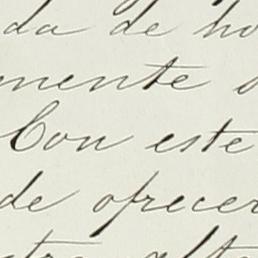 da de ho
mente
Con este
de ofrecer